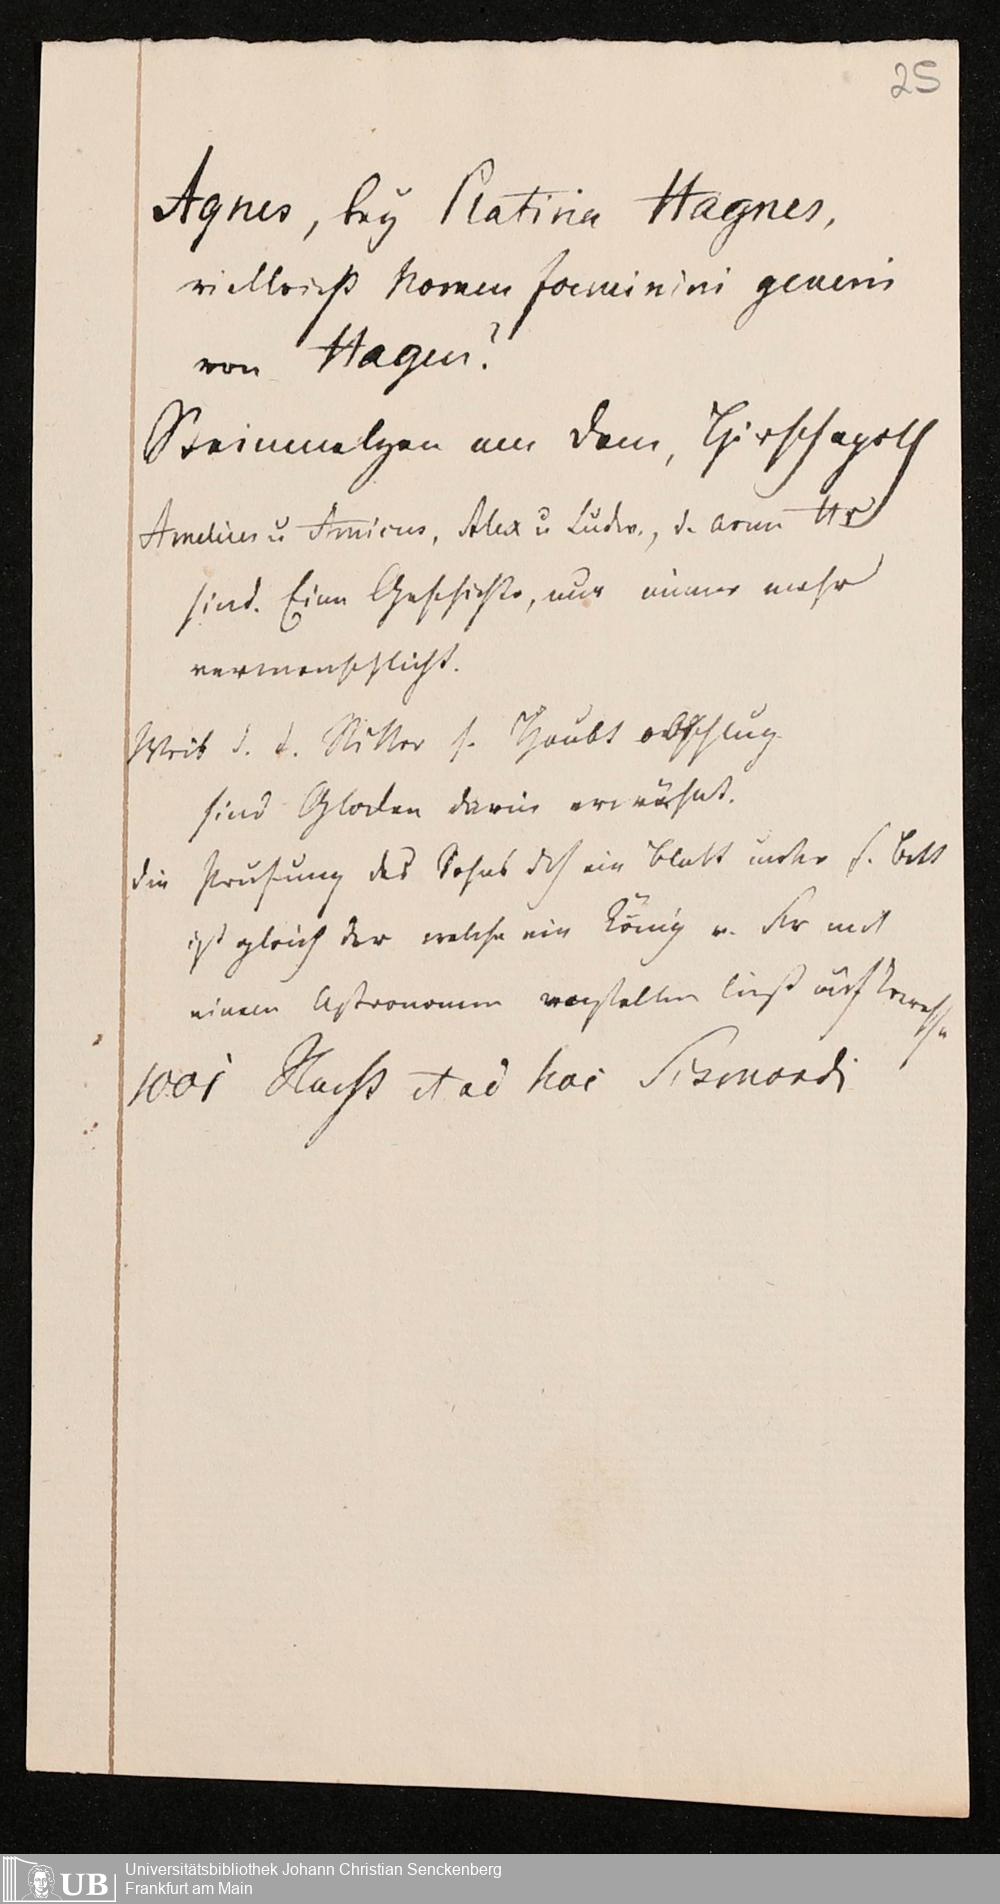 25
Agnes, bey Platina Hagnes,
vielleicht Nomen foeminini generis
von Hagen?
Steinmetzen am Dom,
Amelius u Amicus, Alex u Ludw., d. arme Hr
sind. Eine Geschichte, nur immer mehr
vermenschlicht.
Weib d. d. Ritter s. Haubt abschlug
sind Glocken darin erwähnt.
die Prüfung des Sohns dch ein Blatt unter s. Bett
ist gleich der welche ein König v. mit
einem Astronomen anstellen ließ
1001 Nacht et ad hoc Sismondi
UB
Universitätsbibliothek Johann Christian Senckenberg
Frankfurt am Main